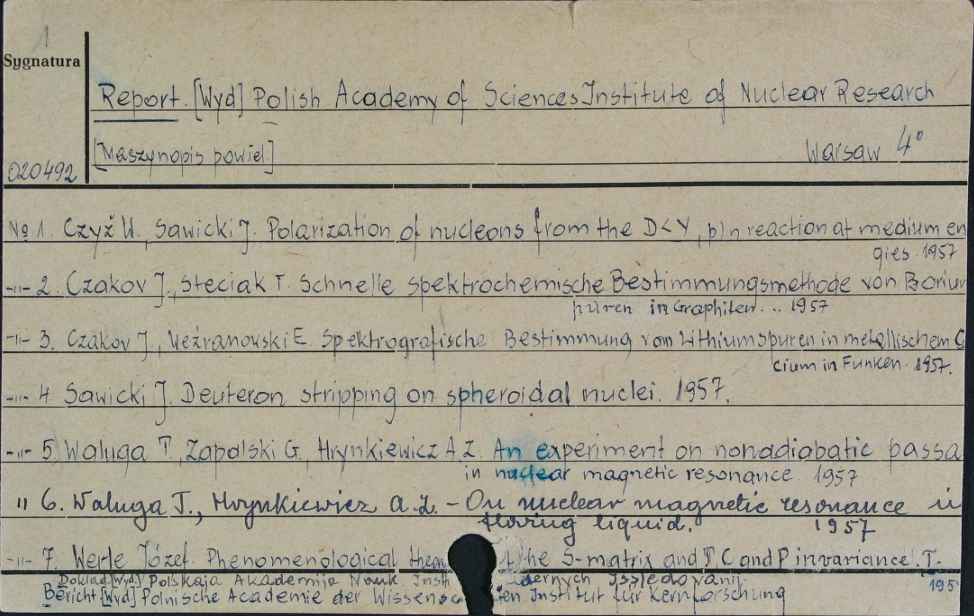 1
Sygnatura
Report. [Wyd] Polish Academy of Sciences Institute of Nuclear Research
[Maszynopis powiel.] Warsaw 4°
020492
№ 1. Czyż W., Sawicki J. Polarization of nucleons from the D<γ, p>n reaction at medium en
gies. 1957
-"- 2. Czakov J., Steciak T. Schnelle spektrochemische Bestimmungsmethode von Borium
puren in Graphiten... 1957
-"- 3. Czakov J., E. Spektrografische Bestimmung von Lithiumspuren in metallischem C
cium in Funken. 1957.
-"- 4 Sawicki J. Deuteron stripping on spheroidal nuclei. 1957.
-"- 5 Waluga T., Zapalski G., Hrynkiewicz A.Z. An experiment on nonadiabatic passa
in nuclear magnetic resonance 1957
" 6. Waluga T., Hrynkiewicz A.Z. - On nuclear magnetic resonance in
flowing liquid. 1957
-"- 7. Werle Józef. Phenomenological the S-matrix and T C and P invariance. T.
Doklad [Wyd] Polskaja Akademija Nauk Inst dernych Issledovanij. 195
Bericht [Wyd] Polnische Academie der Wissensc ten Institut für Kernforschung